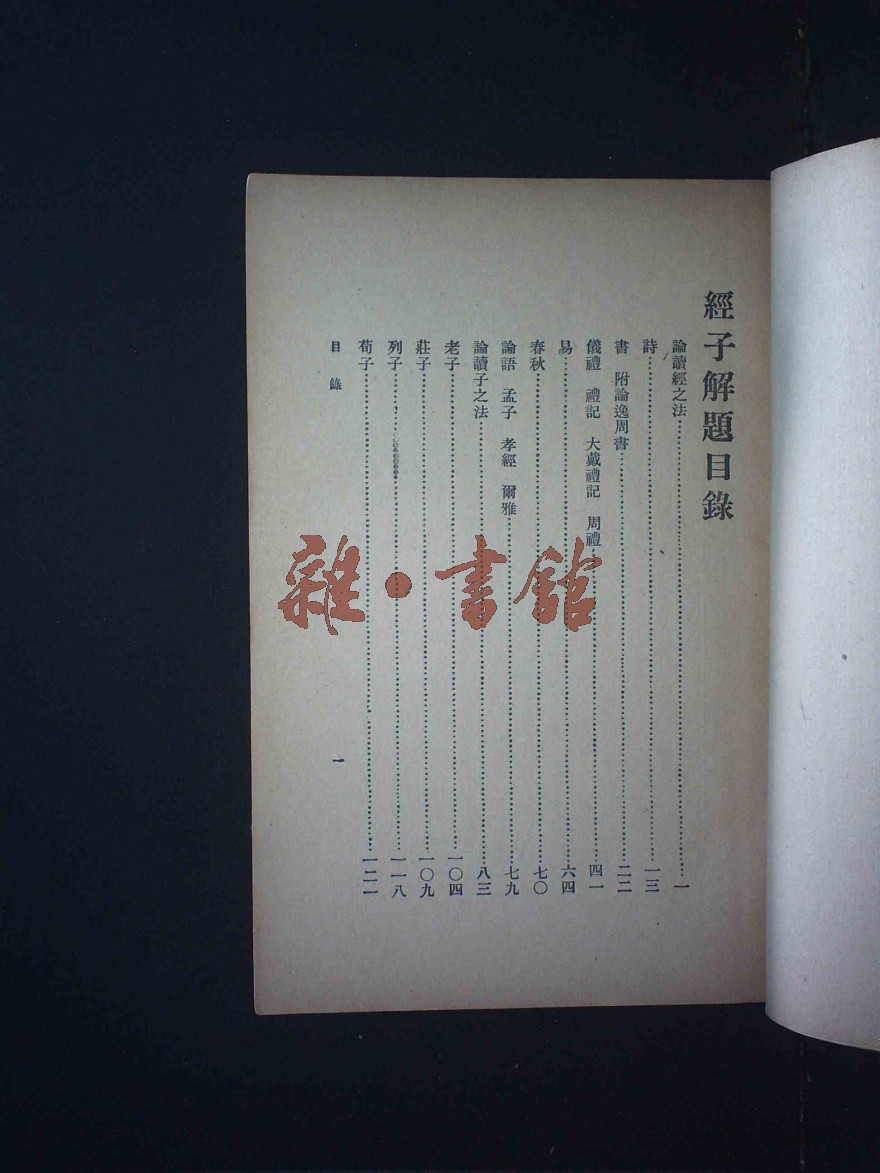 經子解題目錄
論讀經之法……一
詩……一三
書 附論逸周書……二二
儀禮 禮記 大戴禮記 周禮……四一
易……六四
春秋……七〇
論語 孟子 孝經 爾雅……七九
論讀子之法……八三
老子……一〇四
莊子……一〇九
列子……一一八
荀子……一二一
目錄 一
雜·書館